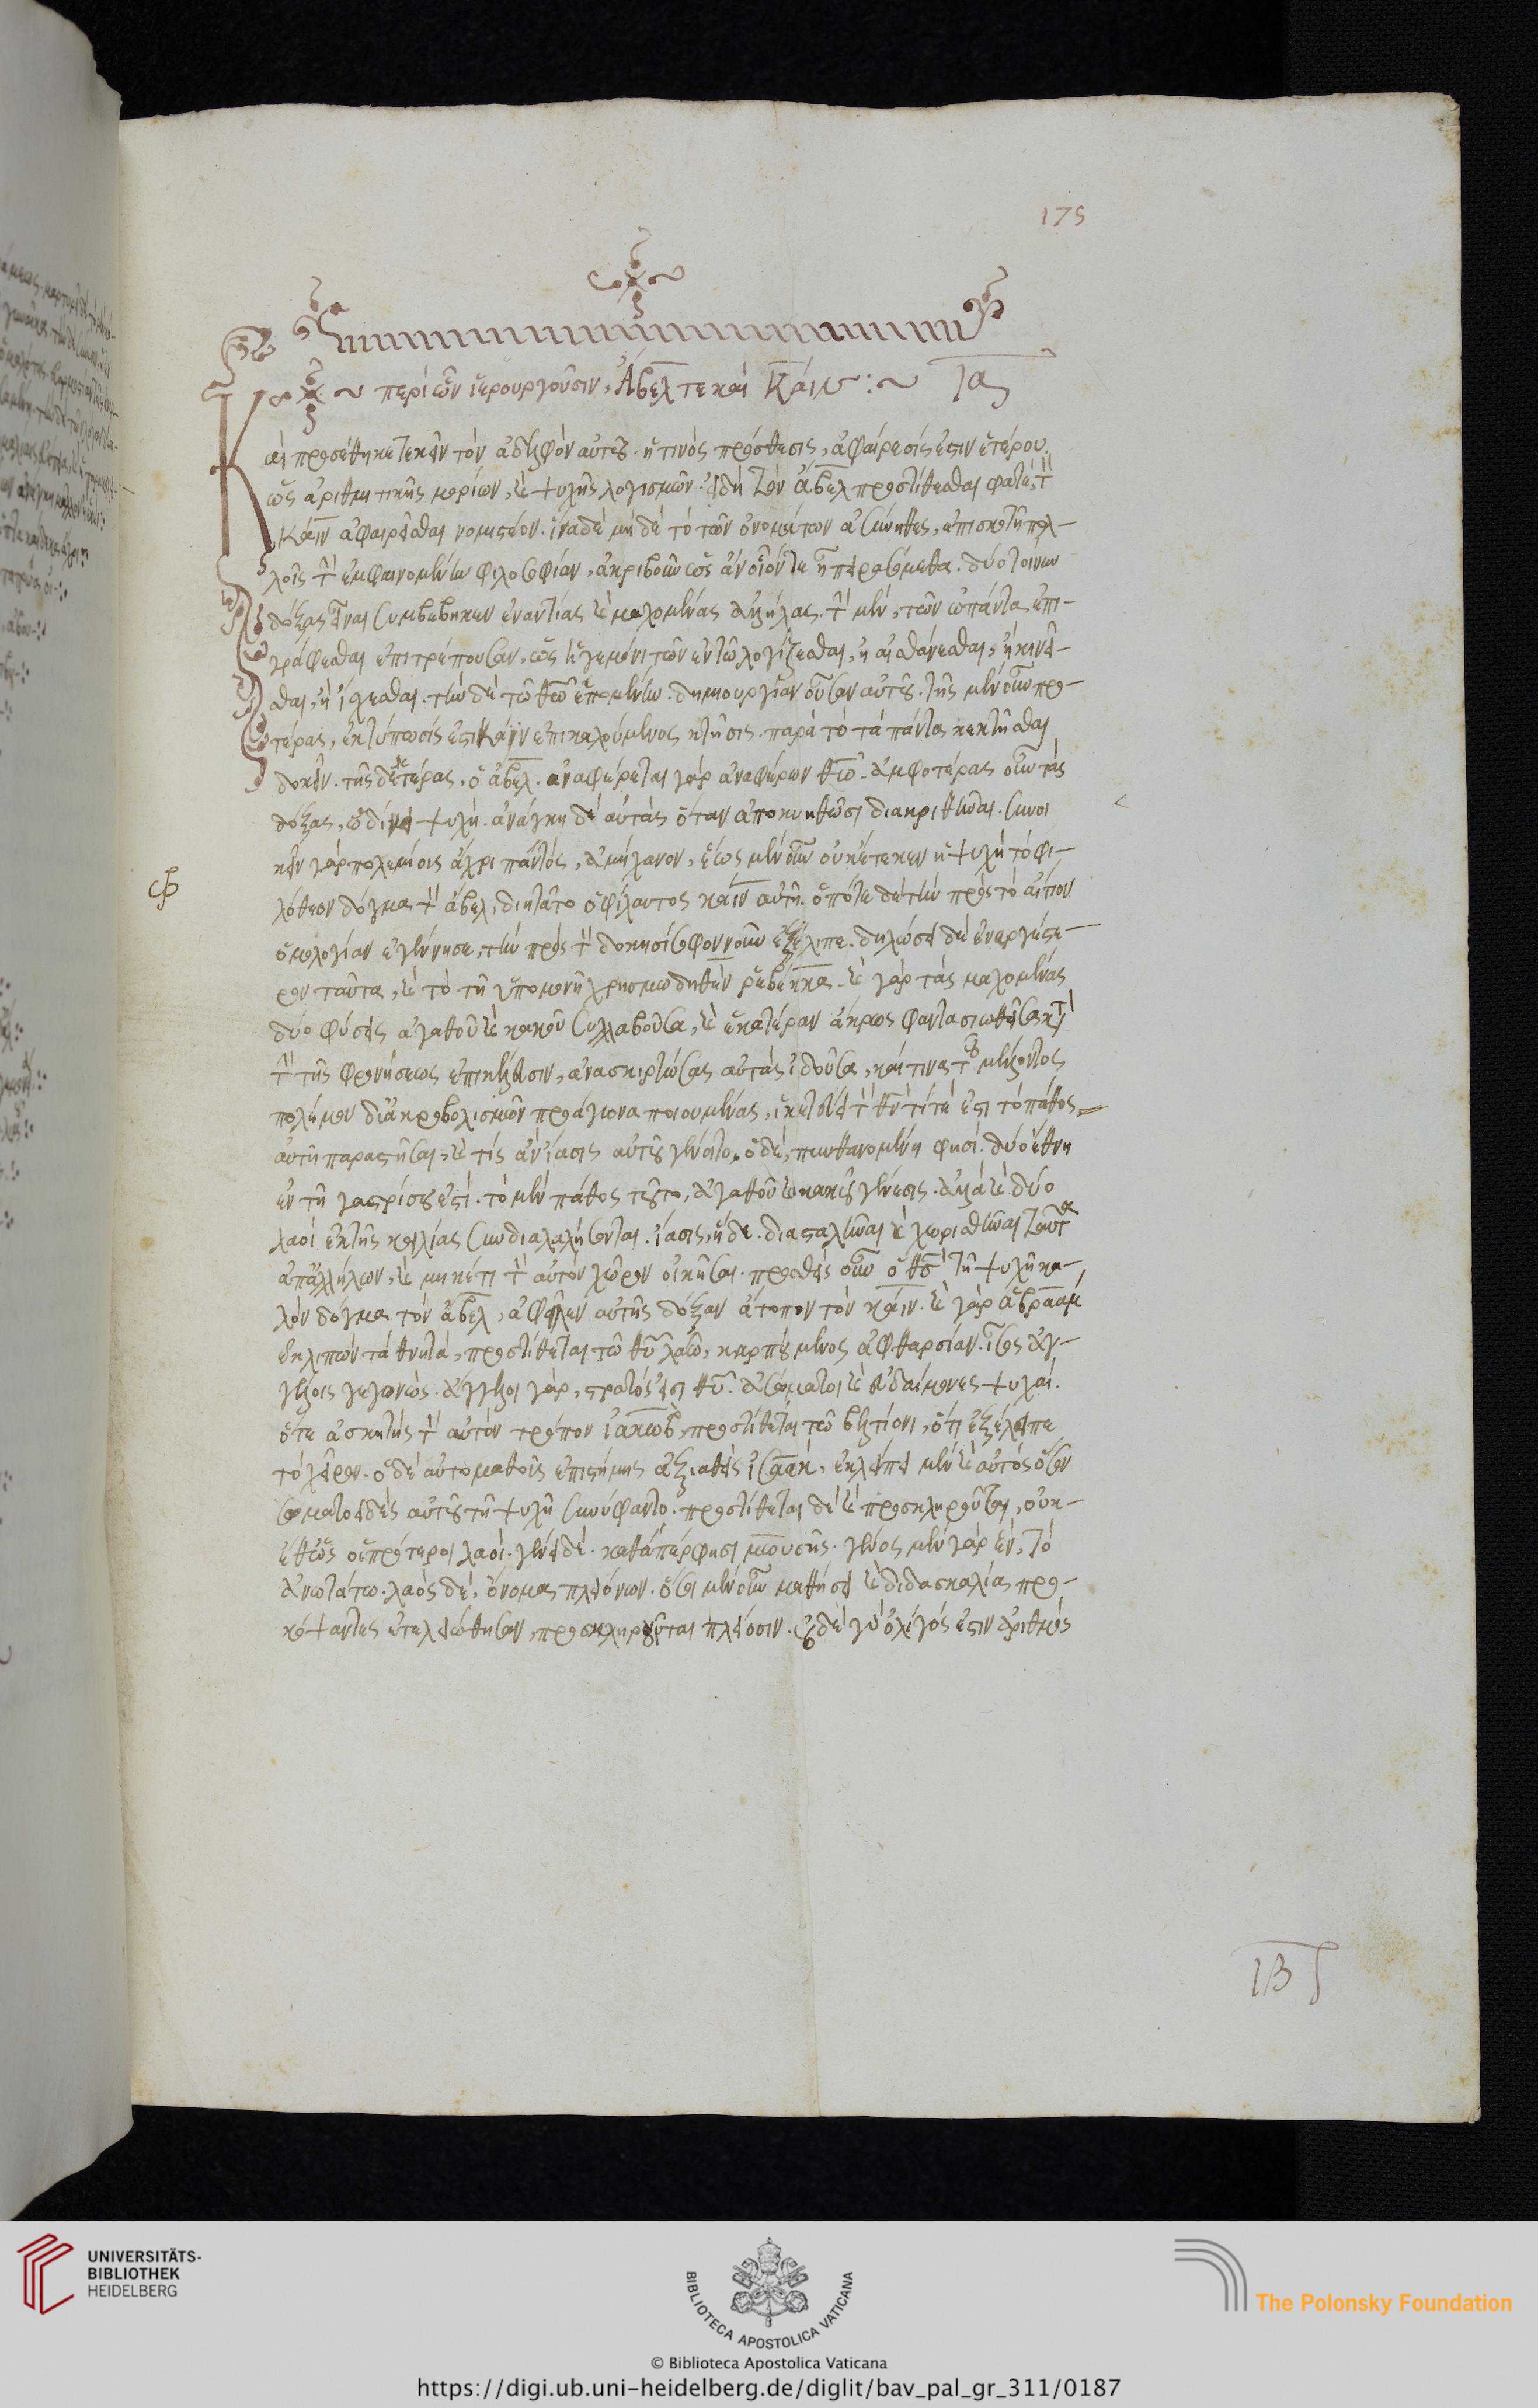 175
περὶ ὧν ἱερουργοῦσιν, Ἄβελ τε καὶ Κάιν :~ ια
Καὶ προσέθηκε τεκεῖν τὸν ἀδελφὸν αὐτοῦ. ἥ τινὸς πρόσθεσις, ἀφαίρεσίς ἐστιν ἑτέρου.
ὡς ἀριθμητικῆς μορίων, καὶ ψυχῆς λογισμῶν. εἰ δὴ τὸν ἄβελ προστίθεσθαι φατέον, τὸν
Κάιν ἀφαιρεῖσθαι νομιστέον. ἵνα δὲ μὴ δὲ τὸ τῶν ὀνομάτων ἀσύνηθες, ἐπισκοτῇ πολ-
λοῖς τὴν ἐμφαινομένην φιλοσοφίαν, ἀκριβοῦν ὡς ἂν οἷόν τε ᾖ πειρασόμεθα. δύο τοίνυν
δόξας εἶναι συμβέβηκεν ἐναντίας καὶ μαχομένας ἀλλήλαις. τὴν μὲν, τῶν ὠπάντα ἐπι-
γράφεσθαι ἐπιτρέπουσαν, ὡς ἡγεμόνι τῶν ἐν τῷ λογίζεσθαι, ἢ αἰσθάνεσθαι, ἢ κινεῖ-
σθαι, ἢ ἴσχεσθαι. τὴν δὲ τῷ θεῷ ἑπομένην. δημιουργίαν οὖσαν αὐτοῦ. τῆς μὲν οὖν προ-
τέρας, ἐκτύπωσίς ἐστι Κάιν ἐπικαλούμενος κτῆσις. παρὰ τὸ τὰ πάντα κεκτῆσθαι
δοκεῖν. τῆς δὲ ἑτέρας, ὁ ἄβελ. ἀναφέρεται γὰρ ἀναφέρων θεῷ. ἀμφοτέρας οὖν τὰς
δόξας, ὠδίνει ψυχή. ἀνάγκη δὲ αὐτὰς ὅταν ἀποκυηθῶσι διακριθῆναι. συνοι
κεῖν γὰρ πολεμίοις ἄχρι παντὸς, ἀμήχανον, ἕως μὲν οὖν οὐκ ἔτεκεν ἡ ψυχὴ τὸ φι-
λόθεον δόγμα τὸν ἄβελ, διῃτᾶτο ὁ φίλαυτος κάιν αὐτῇ. ὁπότε δὲ τὴν πρὸς τὸ αἴτιον
ὁμολογίαν ἐγέννησε, τὴν πρὸς τὸν δοκησίσοφον νοῦν ἐξέλιπε. δηλώσει δὲ ἐναργέστε-
ρον ταῦτα, καὶ τὸ τῇ ὑπομονῇ χρησμῳδηθὲν ῥεβέκκα. καὶ γὰρ τὰς μαχομένας
δύο φύσεις ἀγαθοῦ καὶ κακοῦ συλλαβοῦσα, καὶ ἑκατέραν ἄκρως φαντασιωθεῖσα κατὰ
τὴν τῆς φρονήσεως ἐπίσκεψιν, ἀνασκιρτώσας αὐτὰς ἰδοῦσα, καί τινα τοῦ μέλλοντος
πολέμου διἀκροβολισμῶν προάγωνα ποιουμένας, ἱκετεύει τὸν θεὸν τί τέ ἐστι τὸ πάθος
αὐτῇ παραστῆσαι, καὶ τίς ἂν ἴασις αὐτοῦ γένοιτο. ὁ δὲ, πυνθανομένῃ φησί. δύο ἔθνη
ἐν τῇ γαστρί σού ἐστί. τὸ μὲν πάθος τοῦτο, ἀγαθοῦ καὶ κακοῦ γένεσις. ἀλλὰ καὶ δύο
λαοὶ ἐκ τῆς κοιλίας σου διαλαλήσονται. ἴασις, ἥδε. διασταλῆναι καὶ χωρισθῆναι ταῦτα
ἀπἀλλήλων, καὶ μηκέτι τὸν αὐτὸν χῶρον οἰκῆσαι. προσθεὶς οὖν ὁ θεὸς τῇ ψυχῇ κα-
λὸν δόγμα τὸν ἄβελ, ἀφεῖλεν αὐτῆς δόξαν ἄτοπον τὸν κάιν. καὶ γὰρ ἀβραὰμ
ἐκλιπὼν τὰ θνητὰ, προστίθεται τῷ θεοῦ λαῷ, καρπούμενος ἀφθαρσίαν. ἴσος ἀγ-
γέλοις γεγονώς. ἄγγελοι γὰρ, στρατός εἰσι θεοῦ. ἀσώματοι καὶ εὐδαίμονες ψυχαί.
ὅτε ἀσκητὴς τὸν αὐτὸν τρόπον ἰακὼβ, προστίθεται τῷ βελτίονι, ὅτι ἐξέλειπε
τὸ χεῖρον. ὁ δὲ αὐτομαθοῦς ἐπιστήμης ἀξιωθεὶς ἰσαὰκ, ἐκλείπει μὲν καὶ αὐτὸς ὅσον
σωματοειδὲς αὐτοῦ τῇ ψυχῇ συνύφαντο. προστίθεται δὲ καὶ προσκληροῦται, οὐκ-
έθ ὡς οἱ πρότεροι λαῷ. γένει δὲ. καθάπέρ φησι μωυσῆς. γένος μὲν γὰρ ἓν, τὸ
ἀνωτάτω. λαὸς δὲ, ὄνομα πλειόνων. ὅσοι μὲν οὖν μαθήσει καὶ διδασκαλίᾳ προ-
κόψαντες ἐτελειώθησαν, προσκληροῦνται πλείοσιν. οὐδὲ γὰρ ὀλίγός ἐστιν ἀριθμὸς
UNIVERSITÄTS-
BIBLIOTHEK
HEIDELBERG
BIBLIOTECA APOSTOLICA VATICANA
The Polonsky Foundation
© Biblioteca Apostolica Vaticana
https://digi.ub.uni-heidelberg.de/diglit/bav_pal_gr_311/0187